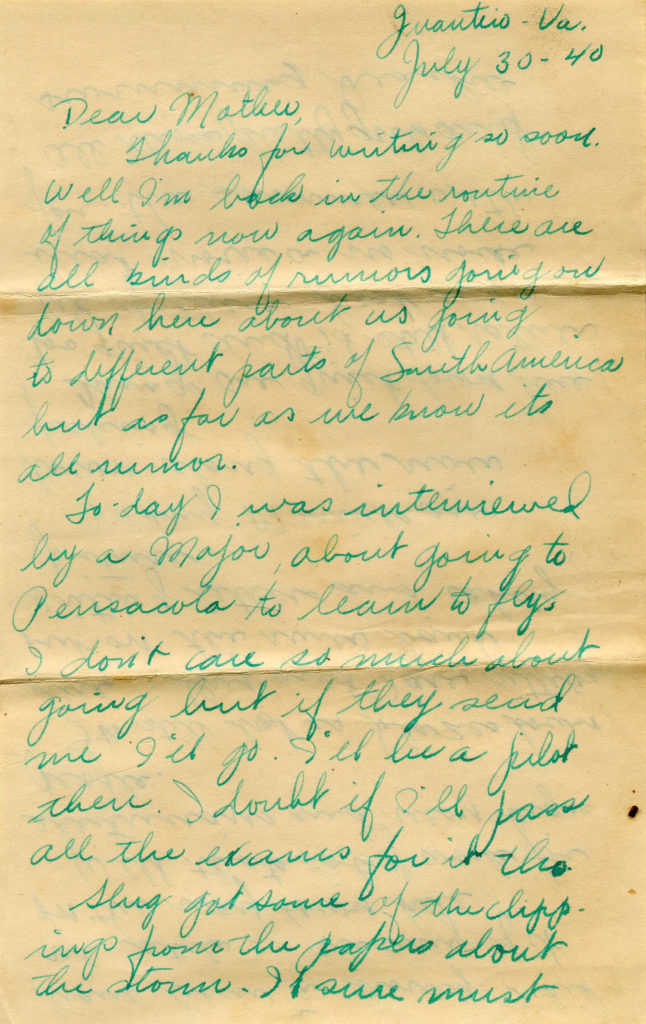 Quantico - Va.
July 30 - 40
Dear Mother,
Thanks for writing so soon.
Well I'm back in the routine
of things now again. There are
all kinds of rumors going on
down here about us going
to different parts of South America
but as far as we know its
all rumor.
To-day I was interviewed
by a Major, about going to
Pensacola to learn to fly.
I don't care so much about
going but if they send
me I'll go. I'll be a pilot
then. I doubt if I'll pass
all the exams for it tho.
Slug got some of the clipp-
ings from the papers about
the storm. It sure must